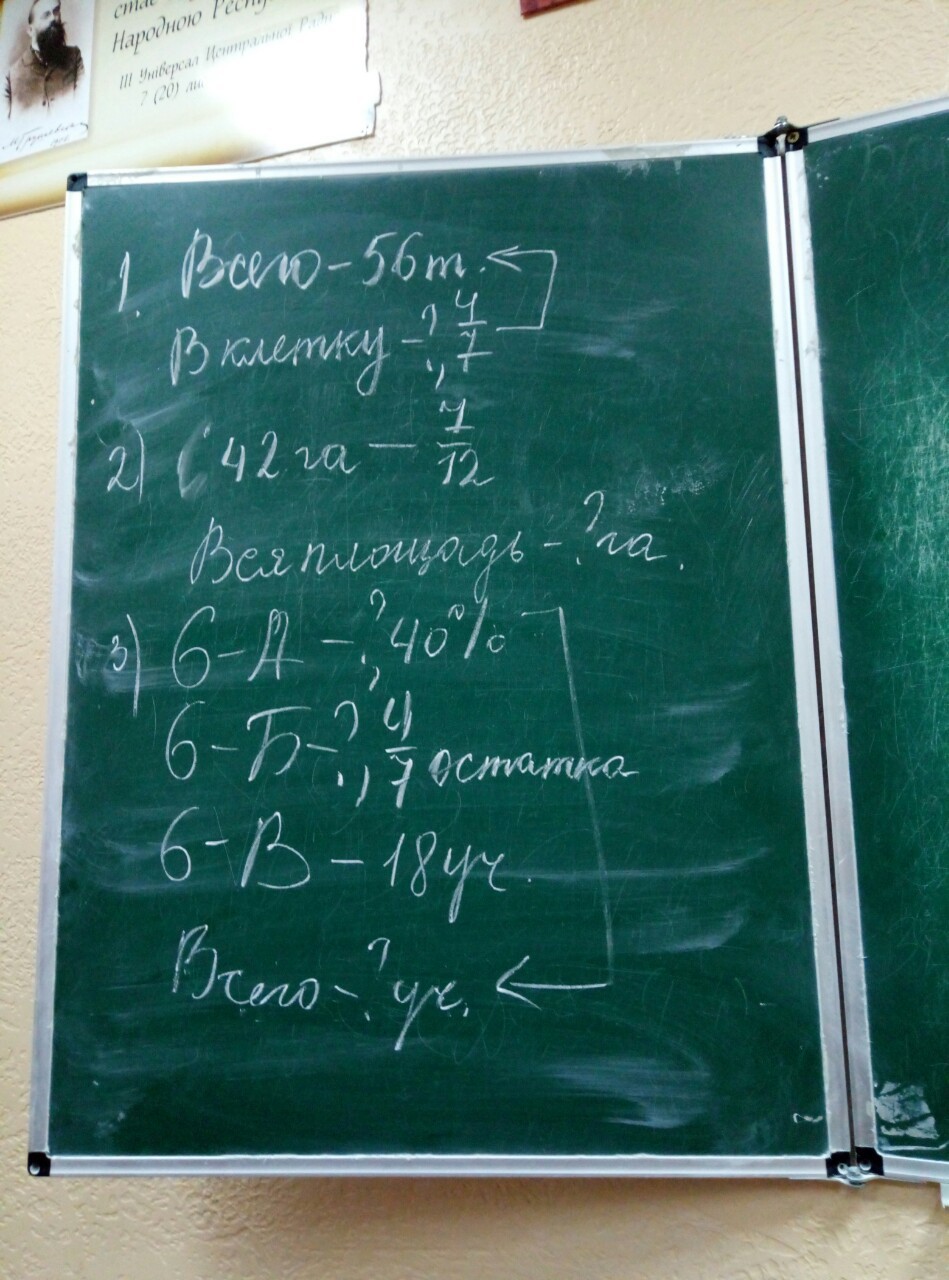 Народною Респу
III Універсал Центральної Ради
7 (20) ли
1. Всего – 56 т.
В клетку – ?, 4/7
2) 42 га – 7/12
Вся площадь – ? га.
3) 6-А – ?, 40%
6-Б – ?, 4/7 остатка
6-В – 18 уч.
Всего – ? уч.